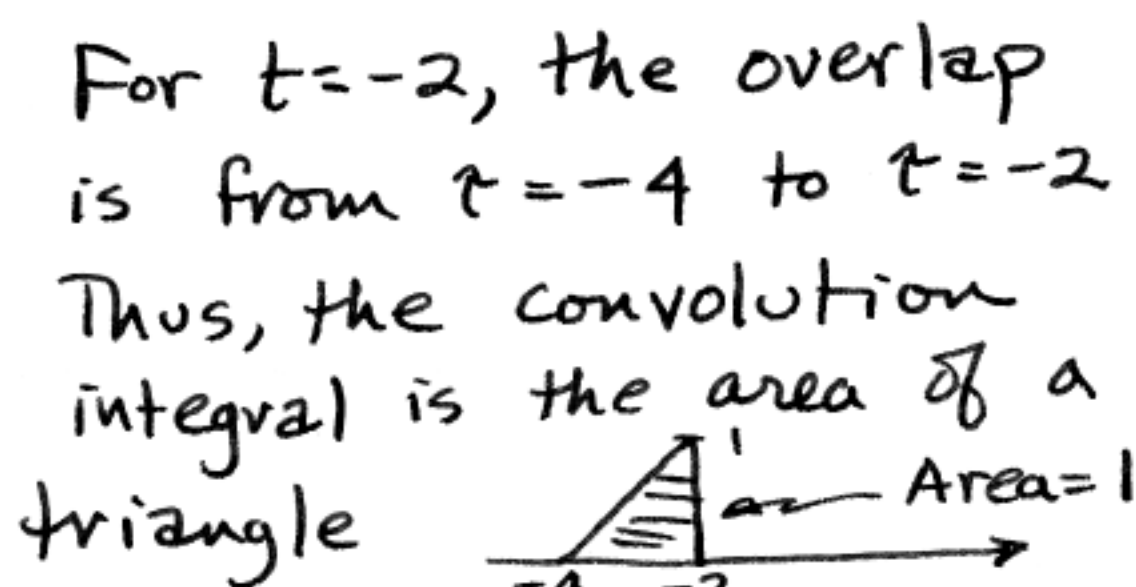 For t=-2, the overlap
is from τ=-4 to τ=-2
Thus, the convolution
integral is the area of a
triangle 1 Area=1
-4 -2